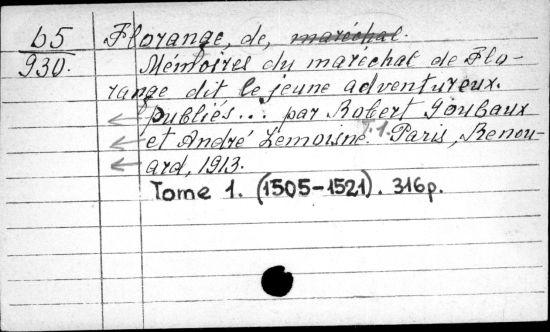 b5 Florange, de, maréchal.
930. Mémoires du maréchal de Flo-
range dit le jeune adventureux.
Publiés... par Robert Goubaux
et André Lemoisne. t.1. Paris, Renou-
ard, 1913.
Tome 1. (1505-1521). 316p.